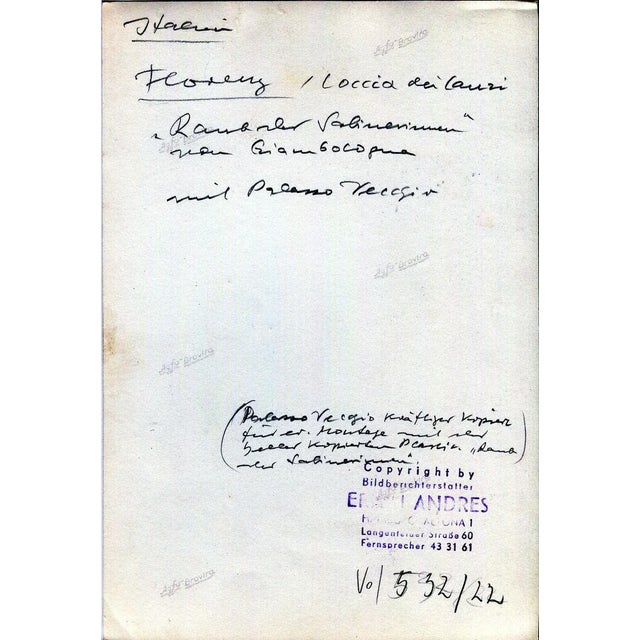 Italien
Florenz / Loccia dei Lanzi
"Raub der Sabinerinnen"
von Giambologna
mit Palazzo Vecchio
(Palazzo Vecchio kräftiger kopiert
für er. Montage mit der
heller kopierten Plastik "Raub
der Sabinerinnen".)
Copyright by
Bildberichterstatter
ERICH ANDRES
HAMBURG-ALTONA 1
Langenfelder Straße 60
Fernsprecher 43 31 61
Vo/532/22
Agfa Brovira
Agfa Brovira
Agfa Brovira
Agfa Brovira